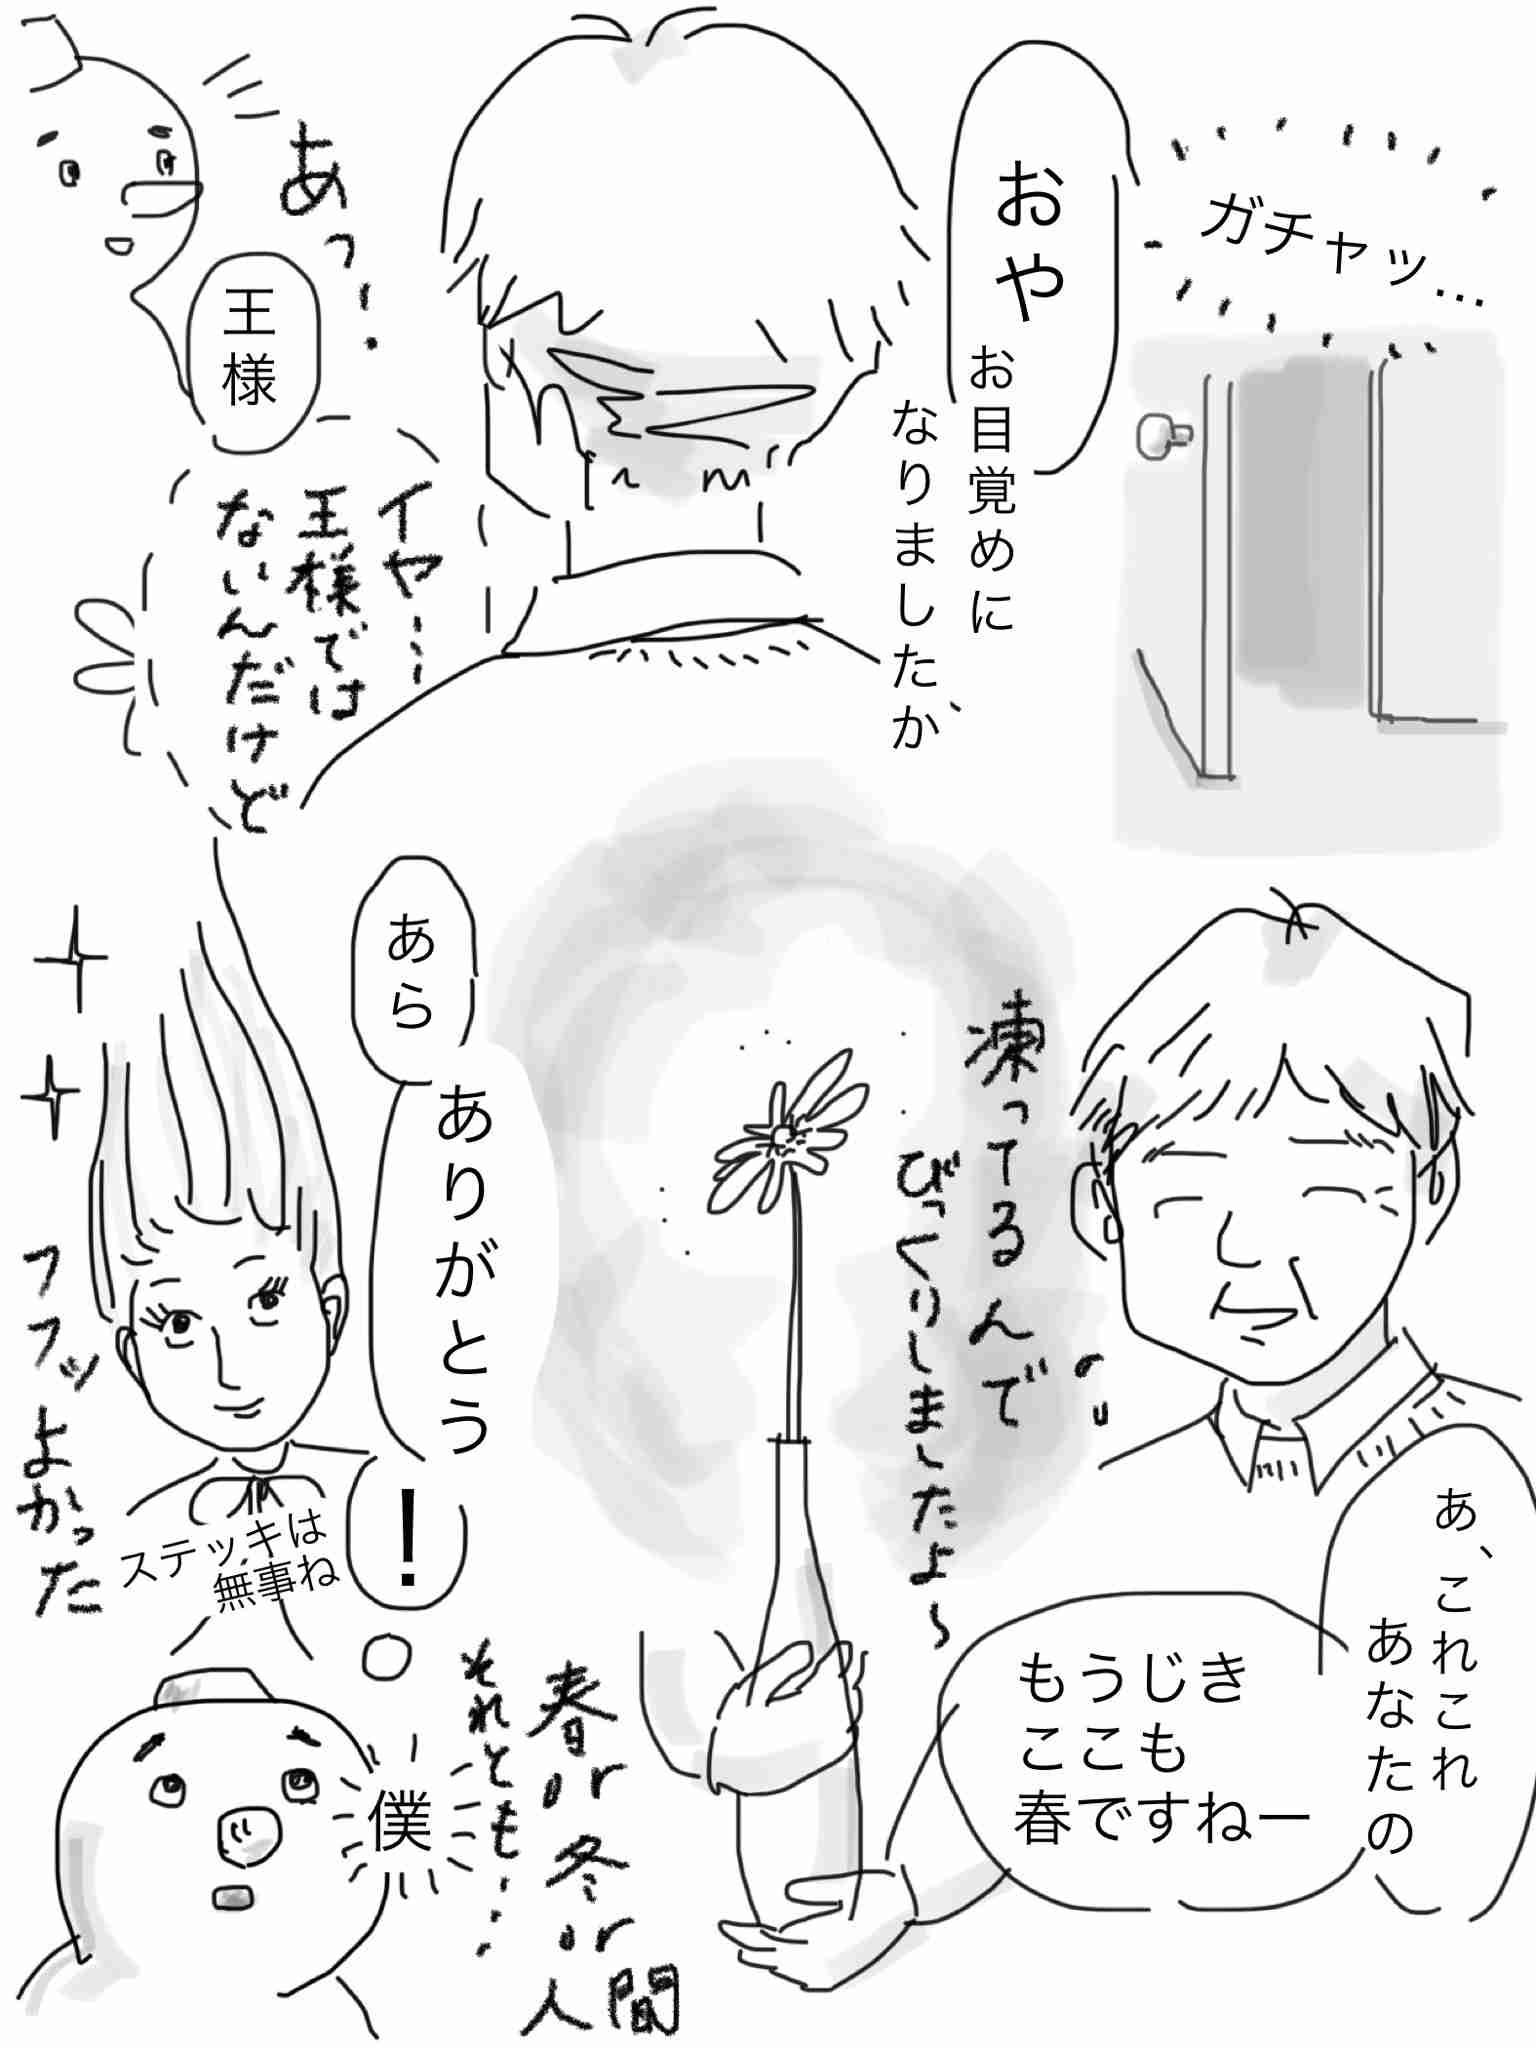 ガチャッ…
おや
お目覚めに
なりましたか、
あっ…
王様
イヤ……
王様では
ないんだけど
凍ってるんで
びっくりしましたよ～
あら
ありがとう
！
フフッよかった
ステッキは
無事ね
あ、これこれ
あなたの
もうじき
ここも
春ですねー
春or冬or人間
それとも……
僕